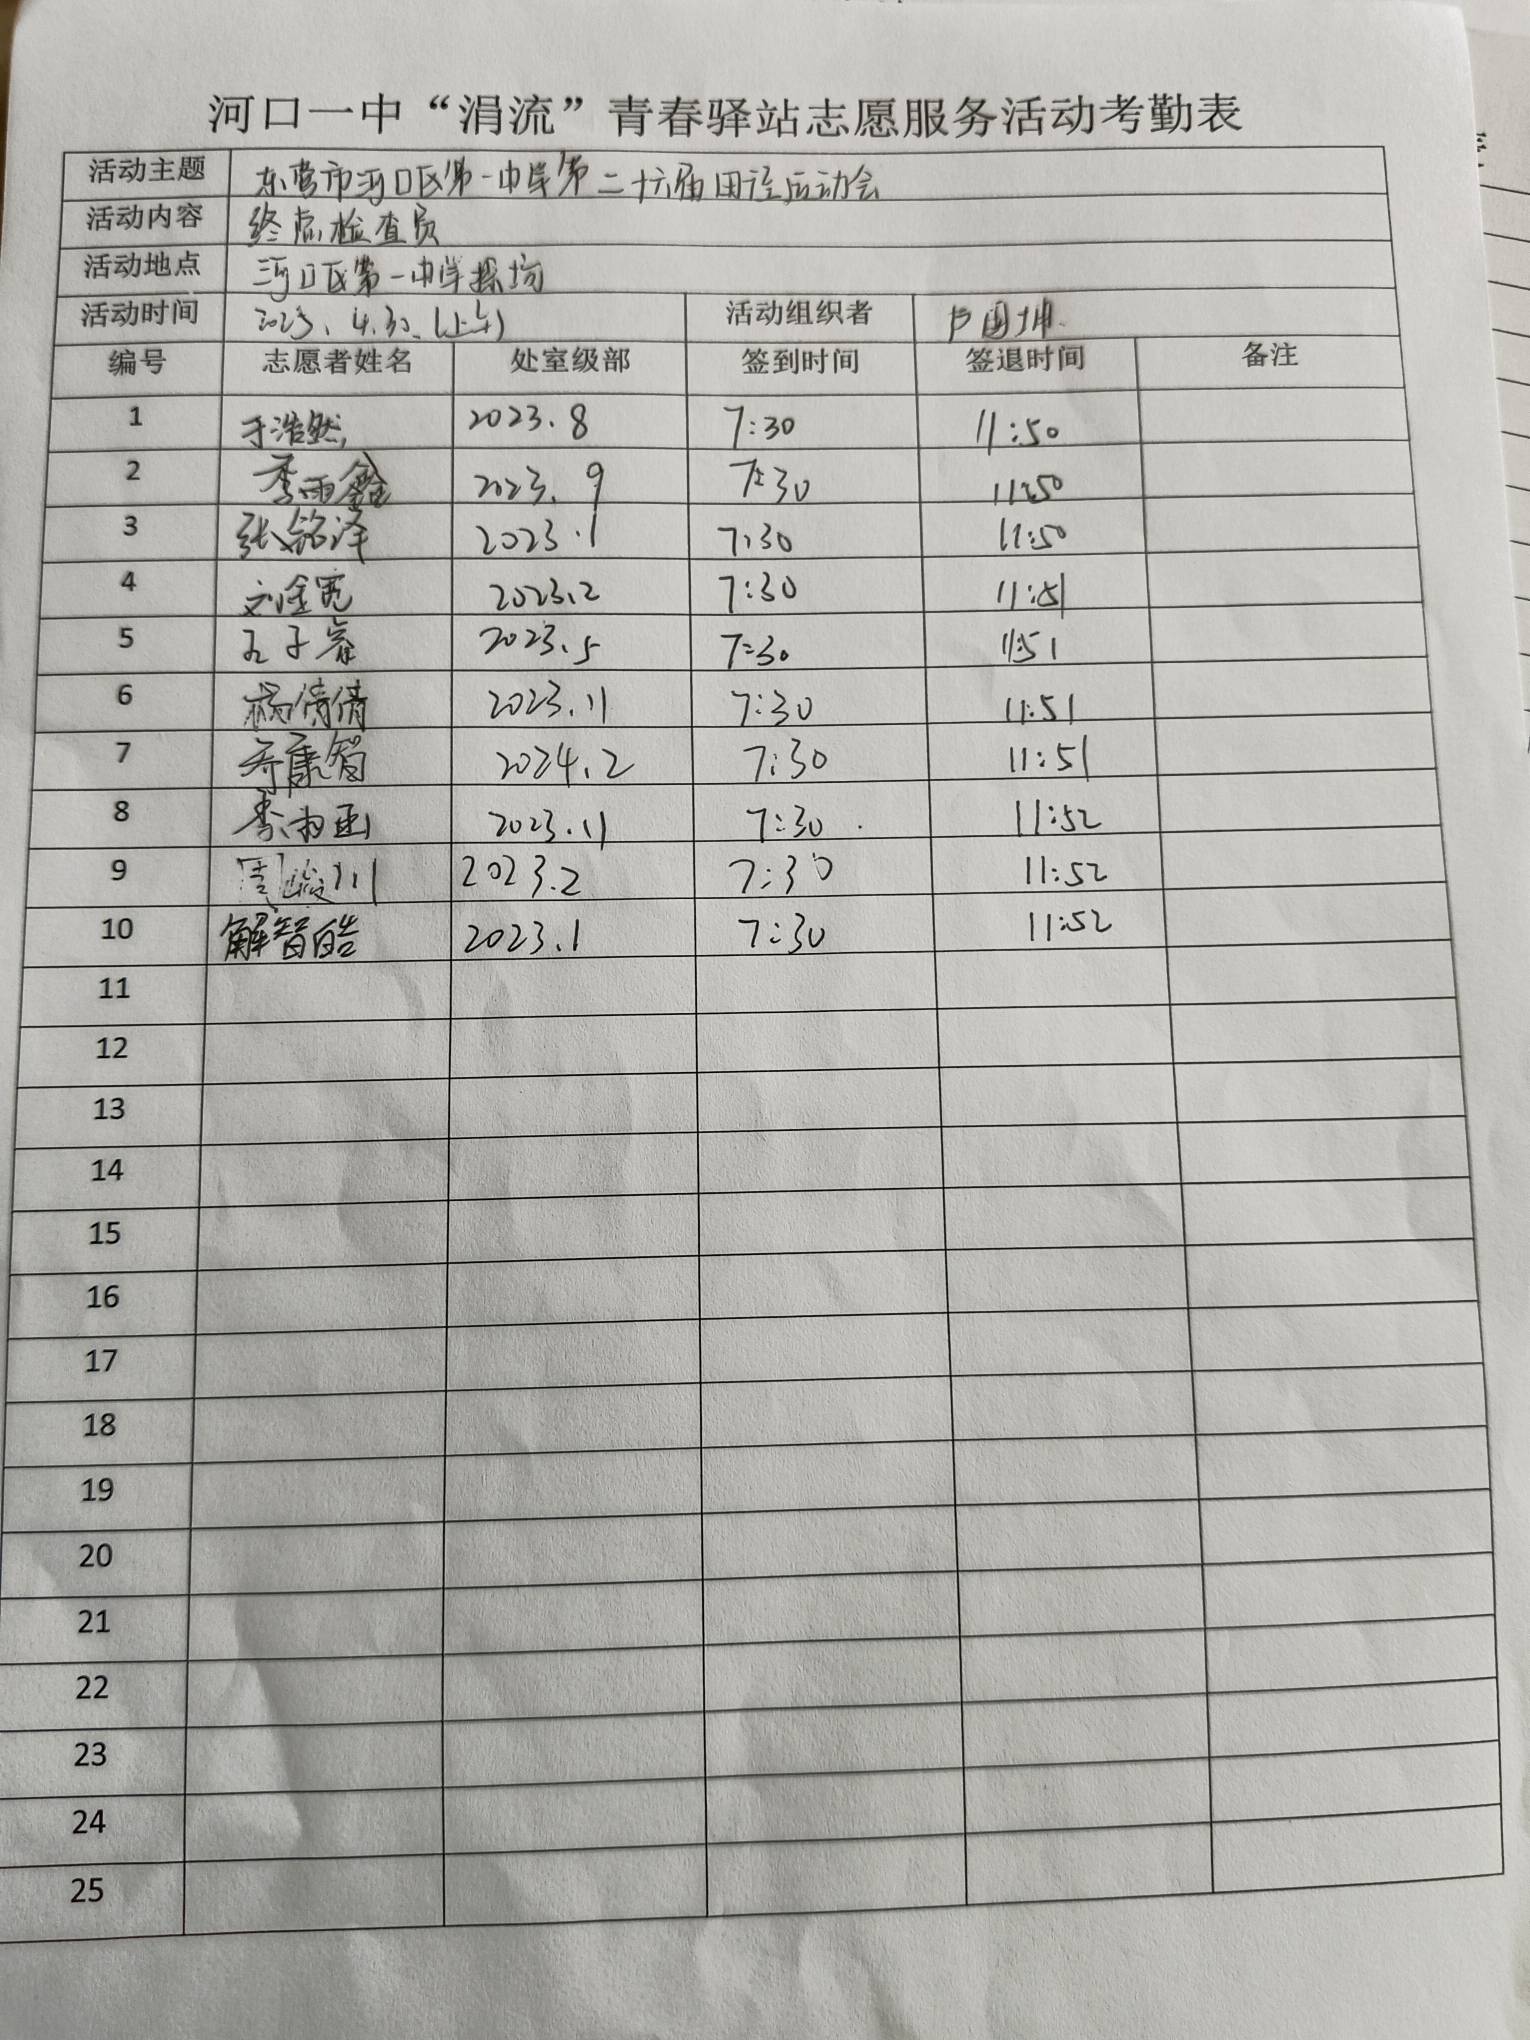 河口一中“涓流”青春驿站志愿服务活动考勤表
活动主题 东营市河口区第一中学第二十六届田径运动会
活动内容 终点检查员
活动地点 河口区第一中学操场
活动时间 2023.4.30.(上午) 活动组织者
编号 志愿者姓名 处室级部 签到时间 签退时间 备注
1 于浩然 2023.8 7:30 11:50
2 李雨鑫 2023.9 7:30 11:50
3 张铭泽 2023.1 7:30 11:50
4 刘金 2023.2 7:30 11:51
5 子睿 2023.5 7:30 11:51
6 杨倩倩 2023.11 7:30 11:51
7 康智 2024.2 7:30 11:51
8 李雨函 2023.11 7:30 11:52
9 周 川 2023.2 7:30 11:52
10 解智皓 2023.1 7:30 11:52
11
12
13
14
15
16
17
18
19
20
21
22
23
24
25